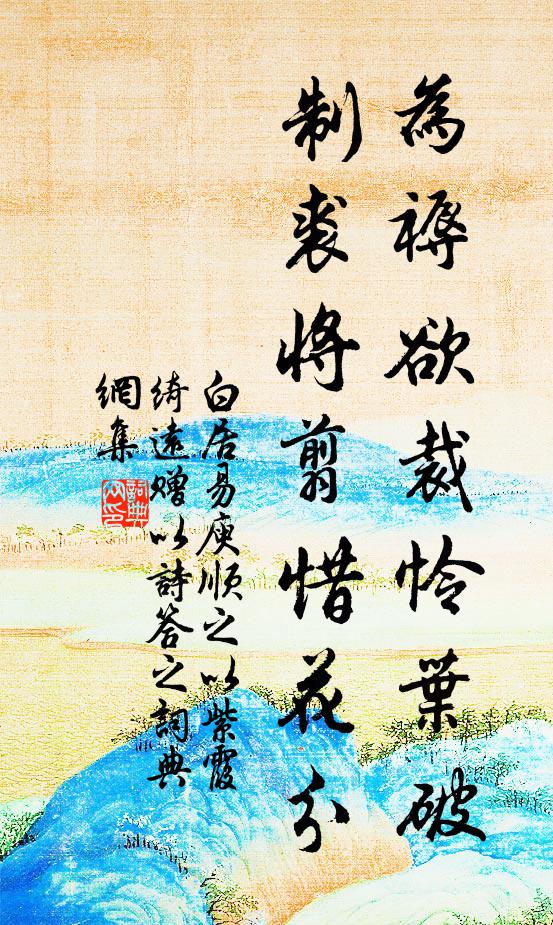 為褥欲裁怜葉破
制裘將剪惜花分
白居易庾順之以紫霞
綺遠贈以詩答之詞典
網集